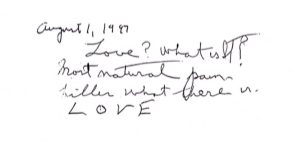 August 1, 1997
Love? What is It?
Most natural pain
killer what there is.
LOVE